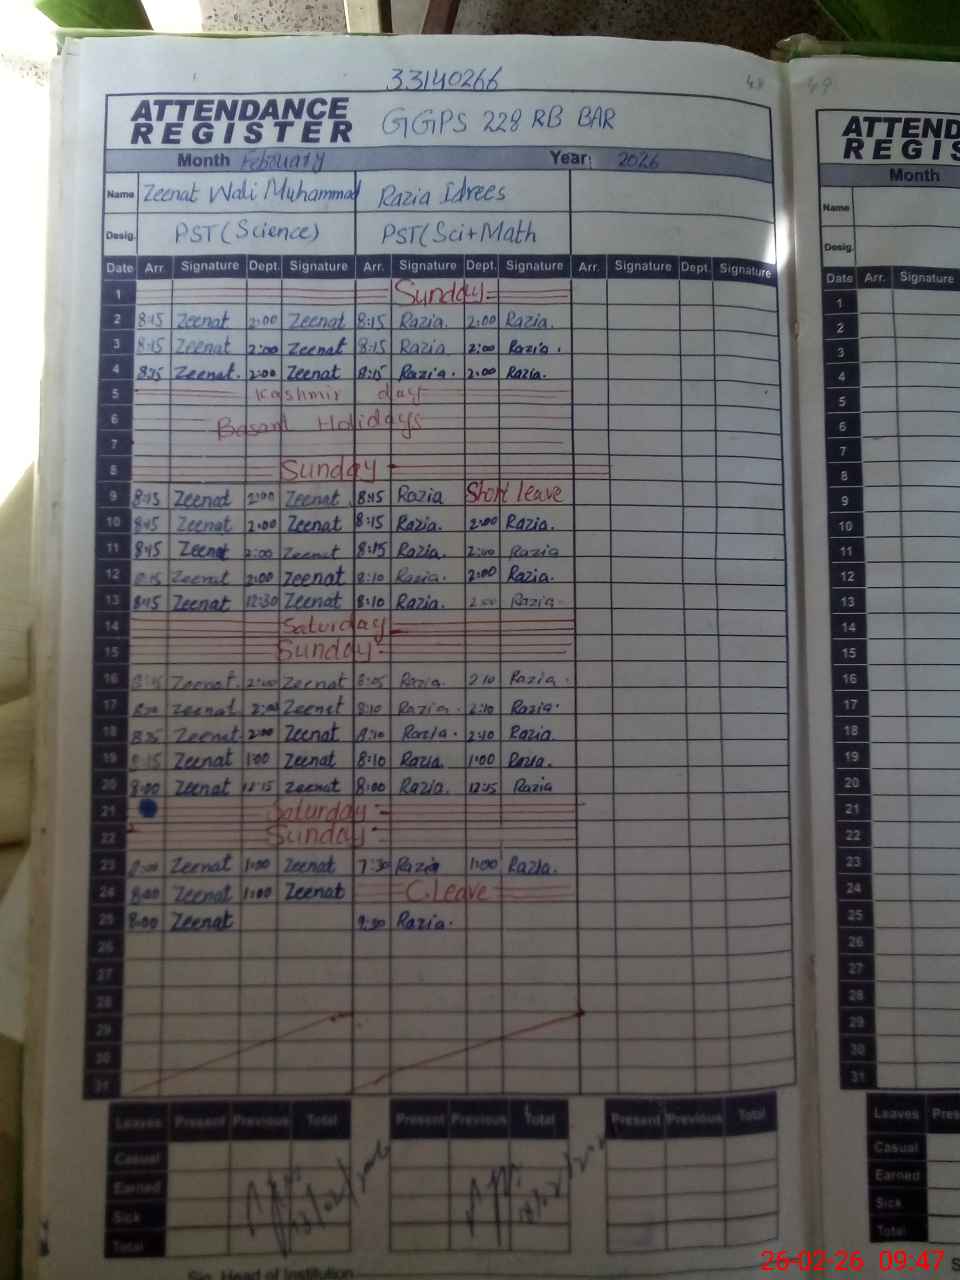 33140266
48
49
ATTENDANCE REGISTER
GGPS 228 RB BAR
Month February Year: 2026
Name Zeenat Wali Muhammad Razia Idrees
Desig. PST (Science) PST (Sci+Math
Date Arr. Signature Dept. Signature Arr. Signature Dept. Signature Arr. Signature Dept. Signature
1 Sunday
2 8:15 Zeenat 2:00 Zeenat 8:15 Razia. 2:00 Razia.
3 8:15 Zeenat 2:00 Zeenat 8:15 Razia 2:00 Razia.
4 8:15 Zeenat. 2:00 Zeenat 8:15 Razia. 2:00 Razia.
5 Kashmir day
6 Basant Holidays
7
8 Sunday
9 8:15 Zeenat 2:00 Zeenat 8:15 Razia Short leave
10 8:15 Zeenat 2:00 Zeenat 8:15 Razia. 2:00 Razia.
11 8:15 Zeenat 2:00 Zeenat 8:15 Razia. 2:00 Razia
12 8:15 Zeenat 2:00 Zeenat 8:10 Razia. 2:00 Razia.
13 8:15 Zeenat 12:30 Zeenat 8:10 Razia. 2:00 Razia
14 Saturday
15 Sunday
16 Zeenat. 2:00 Zeenat 8:05 Razia. 2:10 Razia.
17 Zeenat. 2:00 Zeenat 8:10 Razia. 2:10 Razia.
18 Zeenat. 2:00 Zeenat 8:10 Razia. 2:10 Razia.
19 8:15 Zeenat 1:00 Zeenat 8:10 Razia. 1:00 Razia.
20 8:00 Zeenat 12:15 Zeenat 8:00 Razia. 12:15 Razia
21 Saturday
22 Sunday
23 8:00 Zeenat 1:00 Zeenat 7:30 Razia 1:00 Razia.
24 8:00 Zeenat 1:00 Zeenat C.leave
25 8:00 Zeenat Razia.
26
27
28
29
30
31
Leaves Present Previous Total Present Previous Total Present Previous Total
Casual
Earned
Sick
Total
Sig. Head of Institution
ATTEND
REGIS
Month
Name
Desig.
Date Arr. Signature
1
2
3
4
5
6
7
8
9
10
11
12
13
14
15
16
17
18
19
20
21
22
23
24
25
26
27
28
29
30
31
Leaves Pres
Casual
Earned
Sick
Total
26-02-26 09:47